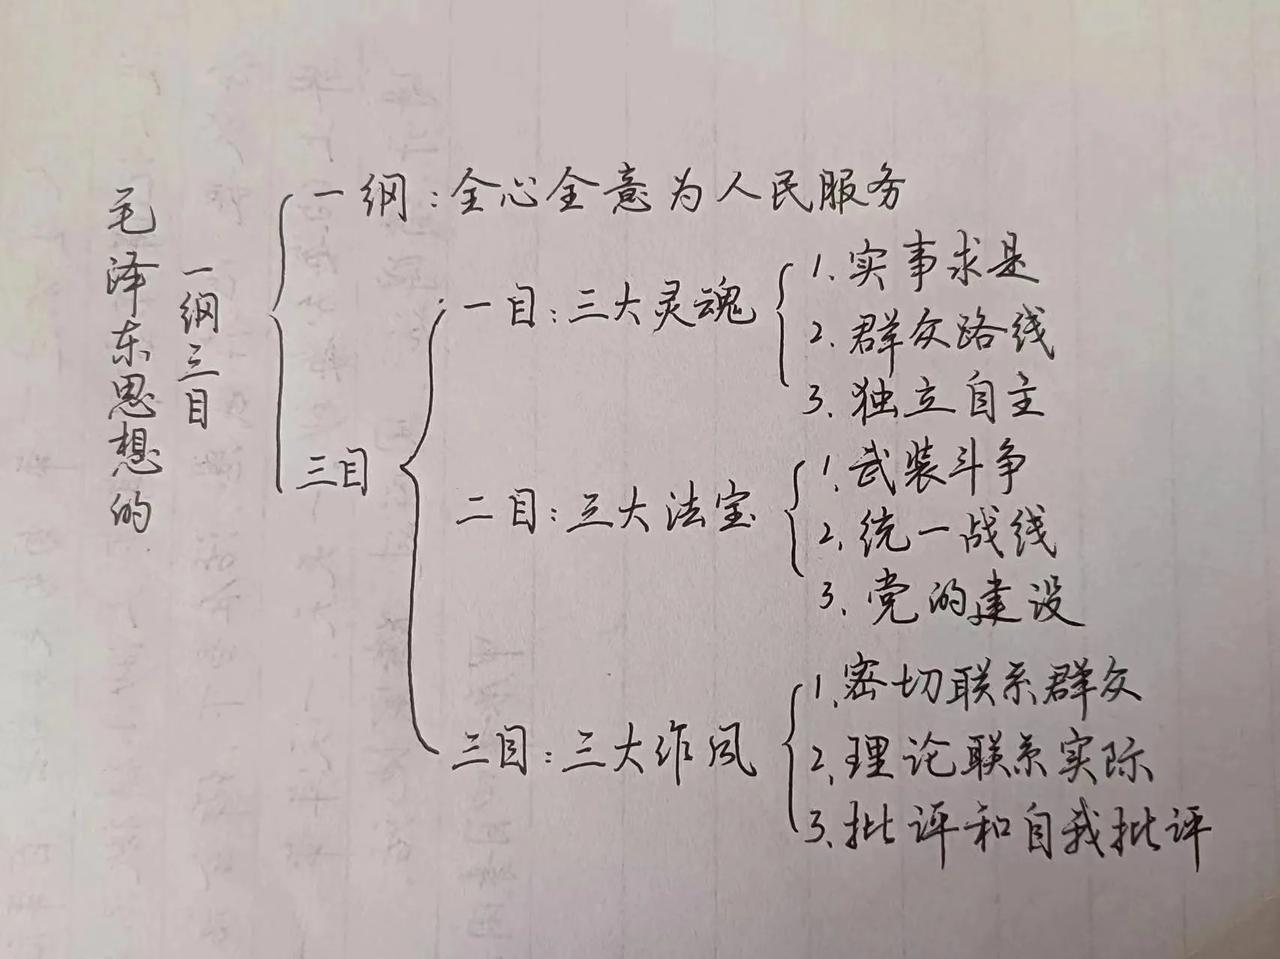 毛泽东思想的
一纲三目
一纲：全心全意为人民服务
三目
一目：三大灵魂
1.实事求是
2.群众路线
3.独立自主
二目：三大法宝
1.武装斗争
2.统一战线
3.党的建设
三目：三大作风
1.密切联系群众
2.理论联系实际
3.批评和自我批评